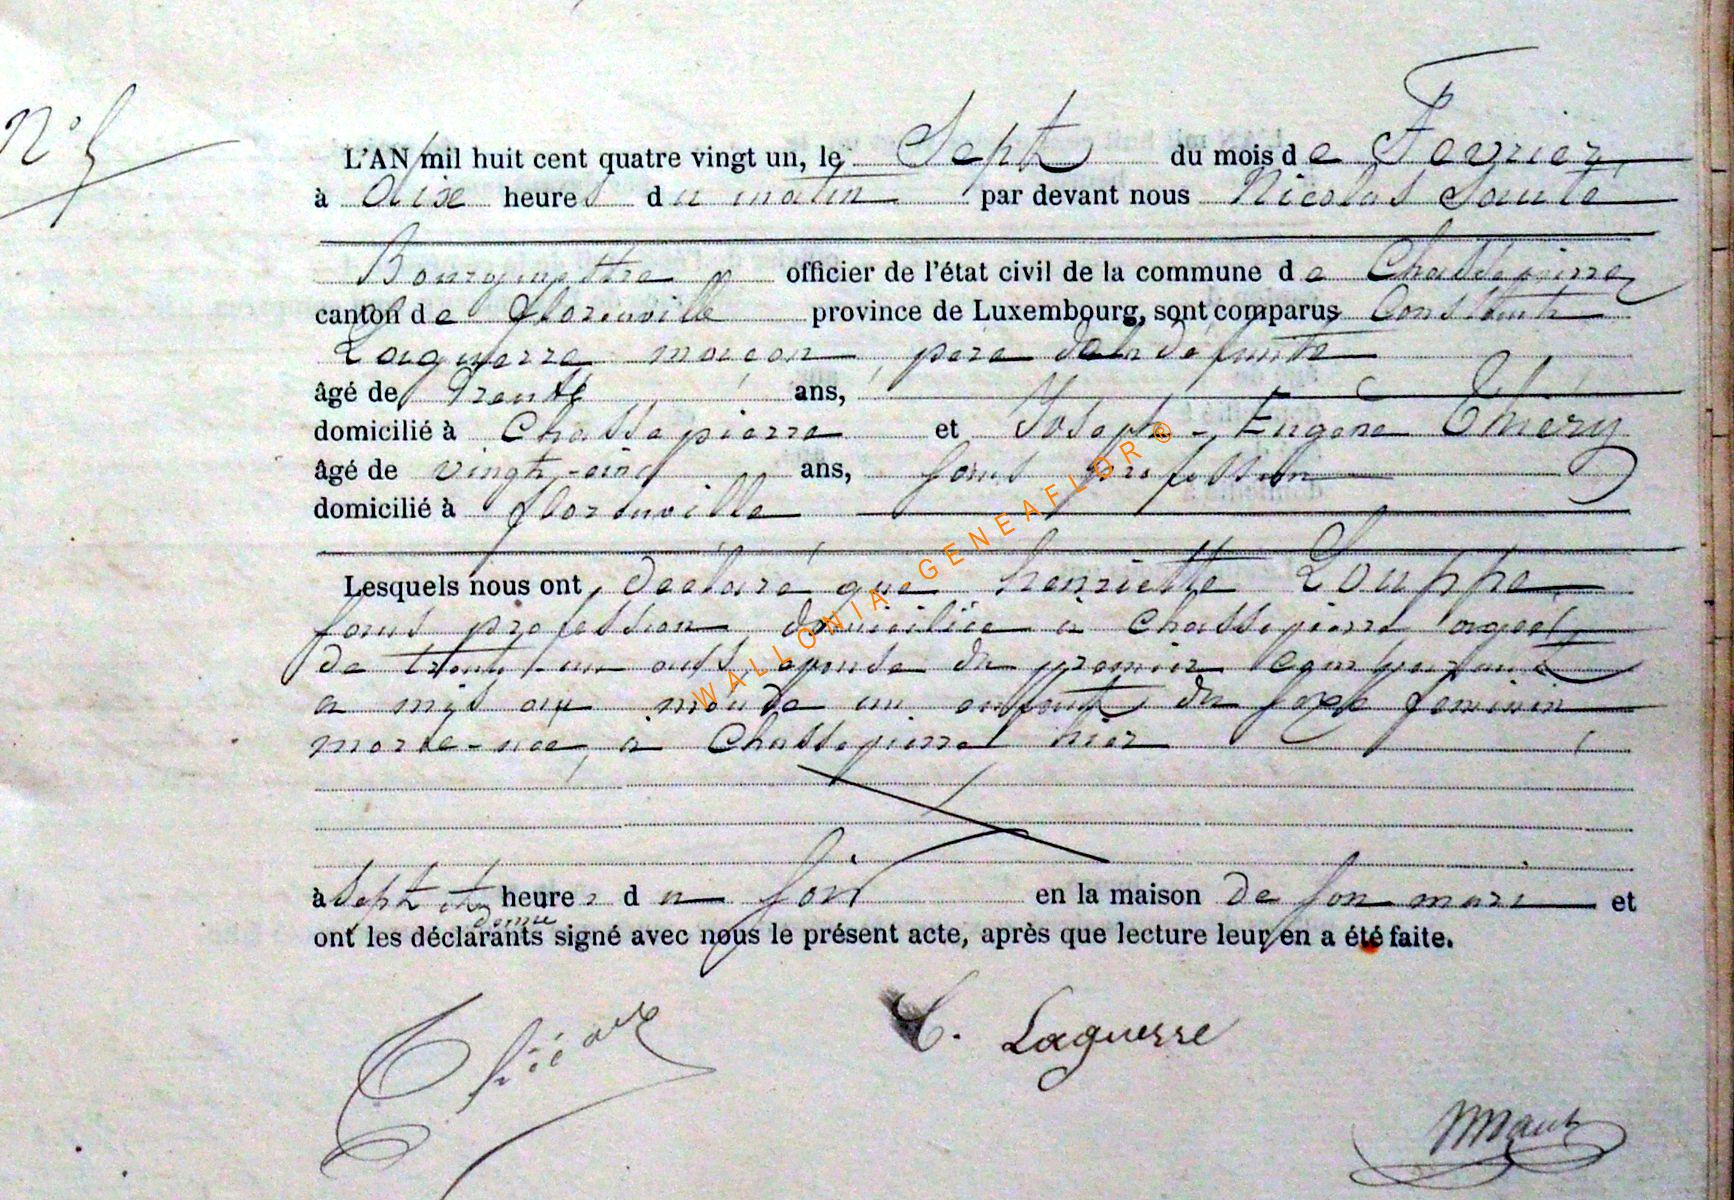 N° 5
L'AN mil huit cent quatre vingt un, le Sept du mois de Fevrier
à dixe heures du matin par devant nous Nicolas
Bourgmettre officier de l'état civil de la commune de Chassepierre
canton de Florenville province de Luxembourg, sont comparus Constant
Laguerre maçon, père de la défunte
âgé de Trente ans,
domicilié à Chassepierre et Joseph-Eugène Théry
âgé de vingt-cinq ans, sans profession
domicilié à Florenville
Lesquels nous ont déclaré que henriette Louppe
sans profession domiciliée à Chassepierre agée
de trente-un ans épouse du premier comparant
a mis au monde un enfant du sexe feminin
morte-née, à Chassepierre hier
à Sept et demie heures du soir en la maison de son mari et
ont les déclarants signé avec nous le présent acte, après que lecture leur en a été faite.
C. Laguerre
WALLONIA GENEAFLOR ©